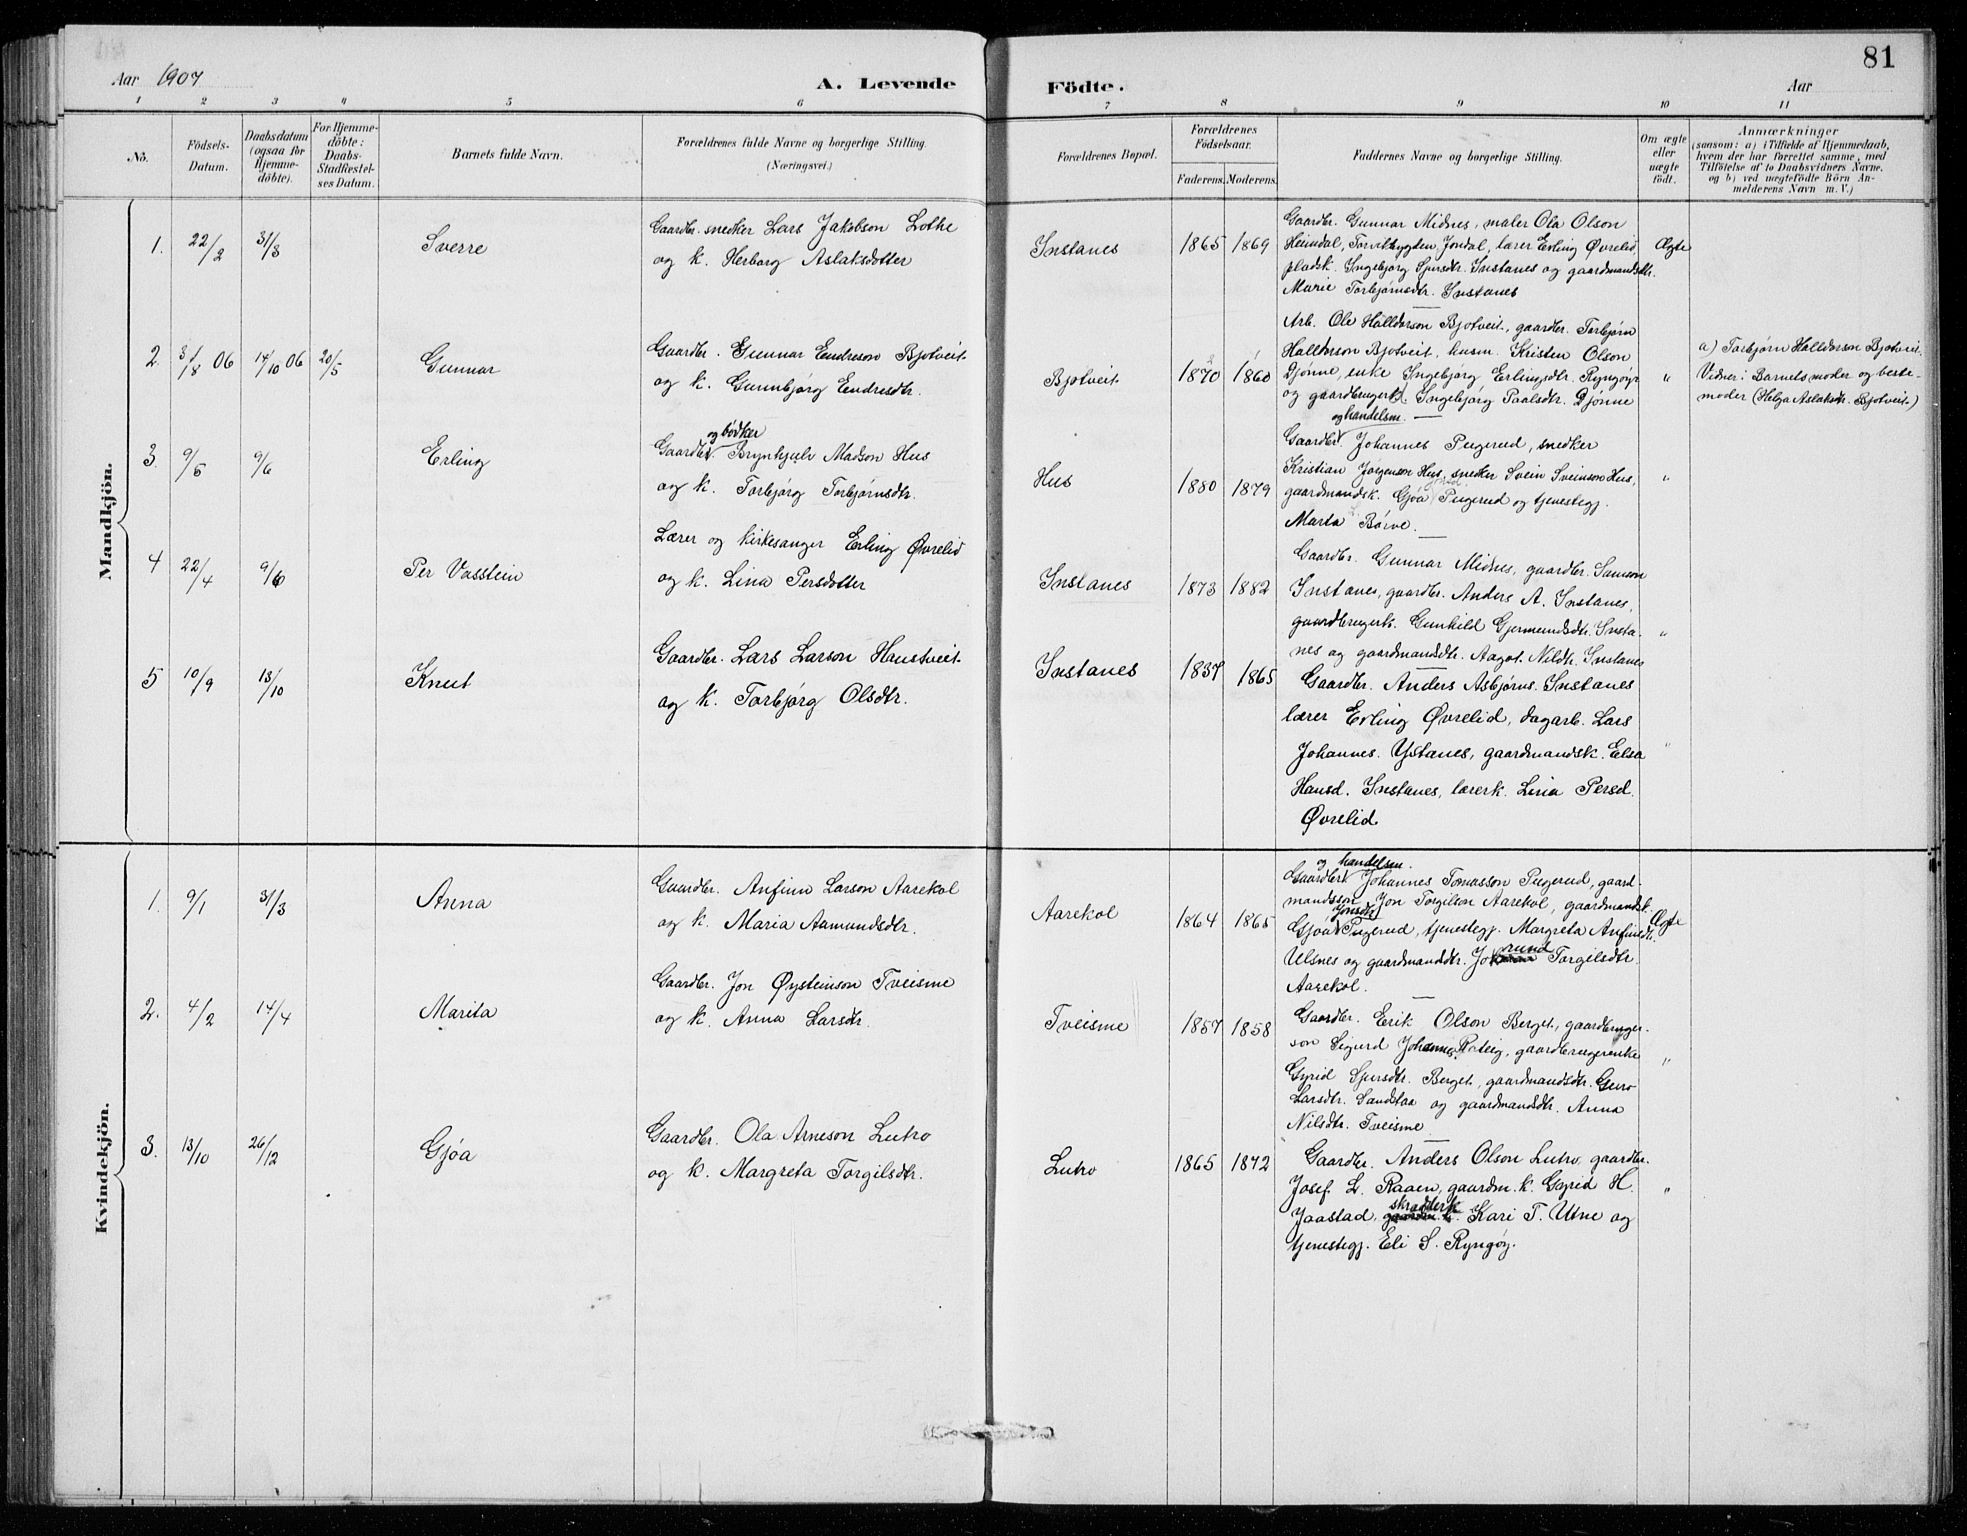 81
Aar 1907
A. Levende
Födte.
Aar
1 2 3 4 5 6 7 8 9 10 11
No.
Födsels-
Datum.
Daabsdatum
(ogsaa for
Hjemme-
döbte).
For Hjemme-
döbte:
Daabs-
Stadfæstel-
ses Datum.
Barnets fulde Navn.
Forældrenes fulde Navne og borgerlige Stilling.
(Næringsvei.)
Forældrenes Bopæl.
Forældrenes
Födselsaar.
Faderens. Moderens.
Faddernes Navne og borgerlige Stilling.
Om ægte
eller
uægte
födt.
Anmærkninger
(saasom: a) i Tilfælde af Hjemmedaab,
hvem der har forrettet samme, med
Tilföielse af to Daabsvidners Navne.
og b) ved uægtefödte Börn An-
melderens Navn m. V.)
Mandkjön.
1. 22/2 31/3 Sverre
Gaardbr. snedker Lars Jakobson Lothe
og k. Herborg Aslaksdotter
Instanes 1865 1869
Gaardbr. Gunnar Midnes, maler Ola Olson
Heimdal, Torvikbygden, Jondal, lærer Erling Øvrelid,
pladsk. Ingebjørg Sjursdtr. Instanes og gaardmandsdtr.
Marie Torbjørnsdtr. Instanes
Ægte
2. 31/8 06 14/10 06 20/5 Gunnar
Gaardbr. Gunnar Endreson Bjotveit
og k. Gunnbjörg Endresdtr.
Bjotveit 1870 1860
Arb. Ole Halldorson Bjotveit, gaardbr. Torbjørn
Halldorson Bjotveit, husm. Kristen Olson
Djönne, enke Ingebjørg Erlingsdtr. Ryngöyr
og gaardbrugerk. Ingebjørg Paalsdtr. Djønne
"
a) Torbjørn Halldorson Bjotveit.
Vidner: Barnets moder og beste-
moder (Helga Aslaksdr. Bjotveit.)
3. 9/5 9/6 Erling
og bødker
Gaardbr. Brynhjulv Madson Hus
og k. Torbjørg Torbjørnsdtr.
Hus 1880 1879
og handelsm.
Gaardbr. Johannes Pugerud, snedker
Kristian Jørgenson Hus, snedker Svein Sveinson Hus,
gaardmandsk. Gjøa Pugerud og tjenestegj.
Marta Børve.
"
4 22/4 9/6 Per Vasstein
Lærer og kirkesanger Erling Øvrelid
og k. Lina Persdotter
Instanes 1873 1882
Gaardbr. Gunnar Midnes, gaardbr. Samson
Instanes, gaardbr. Anders A. Instanes,
gaardbrugerk. Gunhild Gjermundsdtr. Insta-
nes og gaardmandsdtr. Aagot Nilsdtr. Instanes
"
5 10/9 13/10 Knut
Gaardbr. Lars Larson Haustveit
og k. Torbjørg Olsdtr.
Instanes 1837 1865
Gaardbr. Anders Asbjørns. Instanes
lærer Erling Øvrelid, dagarb. Lars
Johannes. Ystanes, gaardmandsk. Elsa
Hansd. Instanes, lærerk. Lina Persd.
Øvrelid
"
Kvindekjön.
1. 9/1 31/3 Anna
Gaardbr. Anfinn Larson Aarekol
og k. Maria Aamundsdtr.
Aarekol 1864 1865
og handelsm.
Gaardbr. Johannes Tomasson Pugerud, gaard-
mandsson Jon Torgilson Aarekol, gaardmandsk.
Jonsdtr
Gjöa Pugerud, tjenestegj. Margreta Anfinsdtr.
Ulsnes og gaardmanddtr. Jorund Torgilsdtr.
Aarekol.
Ægte
2. 4/2 14/4 Marita
Gaardbr. Jon Øysteinson Tveisme
og k. Anna Larsdtr.
Tveisme 1857 1858
Gaardbr. Erik Olson Berget, gaardbruger-
son Sigurd Johannes. Röteig, gaardbrugerenke
Gyrid Sjursdtr. Berget, gaardmandsdtr. Guro
Larsdtr. Sandstaa og gaardmandsdtr. Anna
Nilsdtr. Tveisme
"
3. 13/10 26/12 Gjöa
Gaardbr. Ola Arneson Lutro
og k. Margreta Torgilsdtr.
Lutro 1865 1872
Gaardbr. Anders Olson Lutro, gaardbr.
Josef L. Raaen, gaardm. k. Gyrid H.
skradderk
Jaastad, Kari T. Utne og
tjenestegj. Eli S. Ryngöy.
"